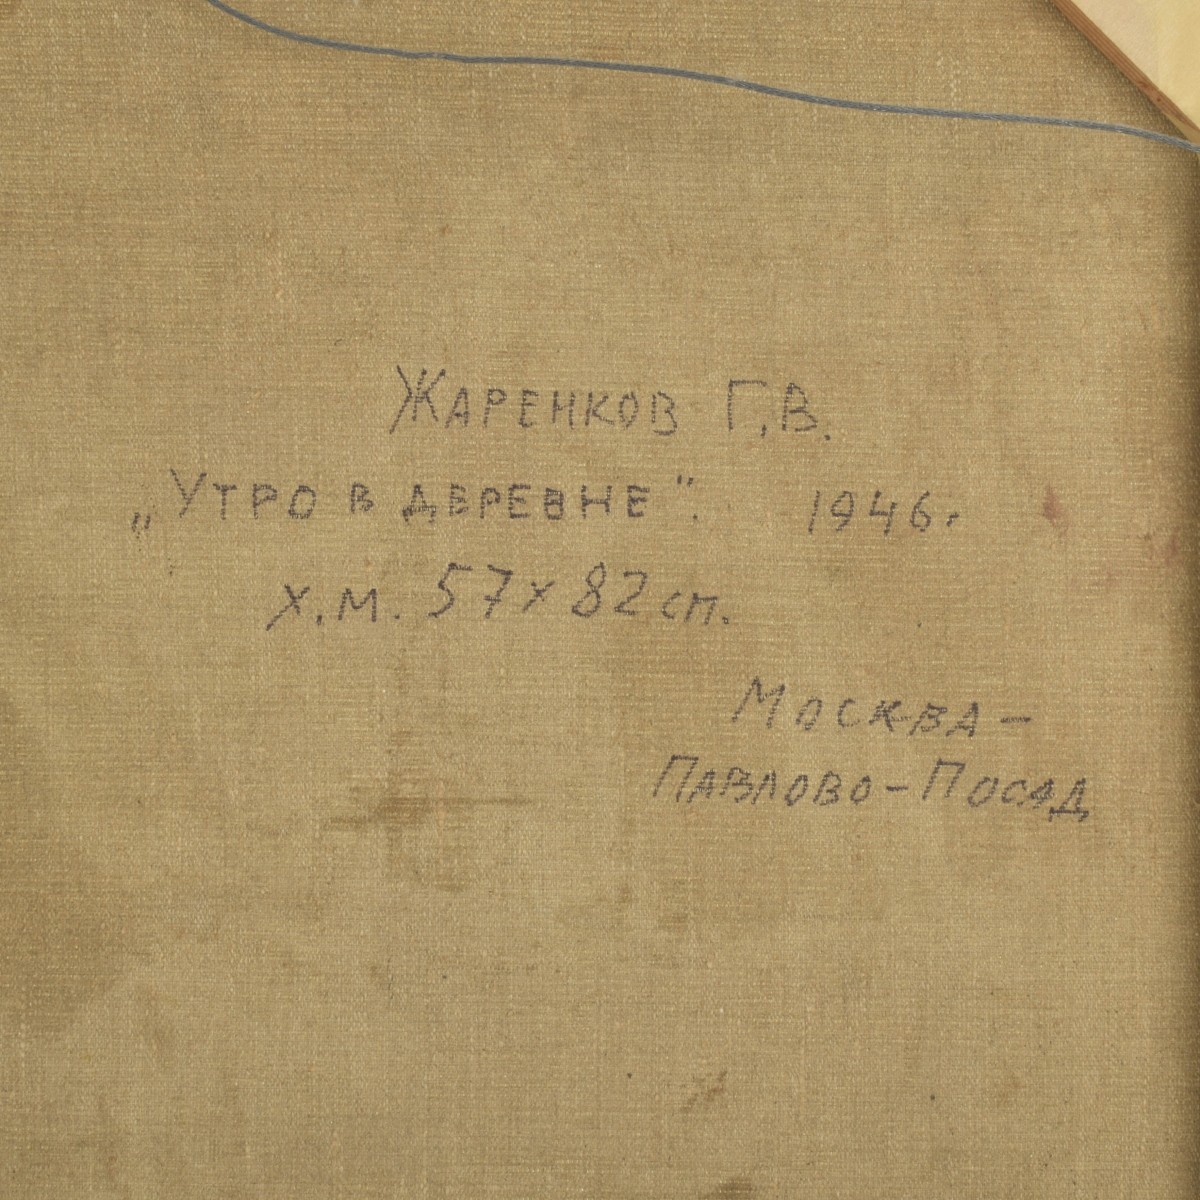 Жаренков Г.В.
„Утро в деревне". 1946г
х.м. 57х82 сп.
Москва –
Павлово – Посад